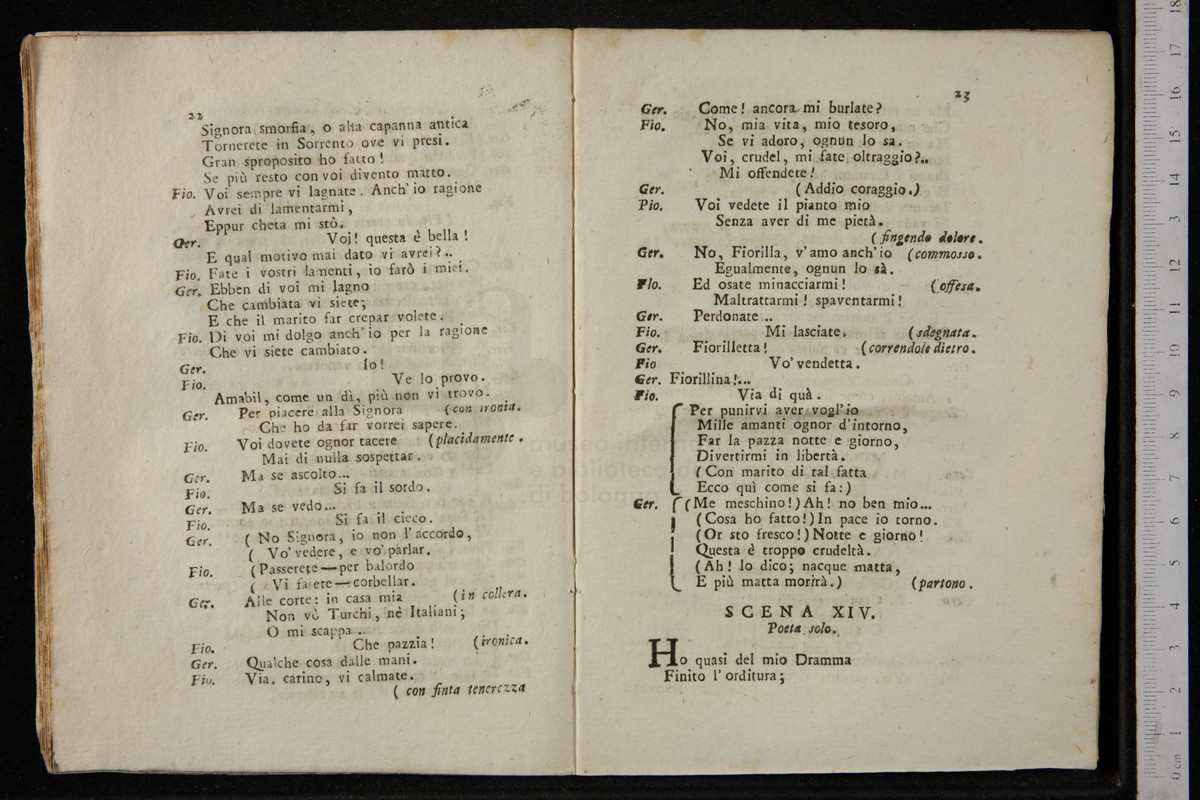 22
Signora smorfia, o alla capanna antica
Tornerete in Sorrento ove vi presi.
Gran sproposito ho fatto!
Se più resto con voi divento matto.
Fio. Voi sempre vi lagnate. Anch' io ragione
Avrei di lamentarmi,
Eppur cheta mi stò.
Ger. Voi! questa è bella!
E qual motivo mai dato vi avrei?..
Fio. Fate i vostri lamenti, io farò i miei.
Ger. Ebben di voi mi lagno
Che cambiata vi siete;
E che il marito far crepar volete.
Fio. Di voi mi dolgo anch' io per la ragione
Che vi siete cambiato.
Ger. Io!
Fio. Ve lo provo.
Amabil, come un dì, più non vi trovo.
Ger. Per piacere alla Signora (con ironia.
Che ho da far vorrei sapere.
Fio. Voi dovete ognor tacere (placidamente.
Mai di nulla sospettar.
Ger. Ma se ascolto...
Fio. Si fa il sordo.
Ger. Ma se vedo...
Fio. Si fa il cieco.
Ger. ( No Signora, io non l' accordo,
( Vo' vedere, e vo' parlar.
Fio. (Passerete—per balordo
( Vi farete—corbellar.
Ger. Alle corte: in casa mia (in collera.
Non vò Turchi, nè Italiani;
O mi scappa...
Fio. Che pazzia! (ironica.
Ger. Qualche cosa dalle mani.
Fio. Via, carino, vi calmate.
( con finta tenerezza
23
Ger. Come! ancora mi burlate?
Fio. No, mia vita, mio tesoro,
Se vi adoro, ognun lo sa.
Voi, crudel, mi fate oltraggio?..
Mi offendete!
Ger. (Addio coraggio.)
Fio. Voi vedete il pianto mio
Senza aver di me pietà.
( fingendo dolore.
Ger. No, Fiorilla, v' amo anch' io (commosso.
Egualmente, ognun lo sà.
Flo. Ed osate minacciarmi! (offesa.
Maltrattarmi! spaventarmi!
Ger. Perdonate...
Fio. Mi lasciate. (sdegnata.
Ger. Fiorilletta! (correndole dietro.
Fio Vo' vendetta.
Ger. Fiorillina!...
Fio. Via di quà.
Per punirvi aver vogl' io
Mille amanti ognor d' intorno,
Far la pazza notte e giorno,
Divertirmi in libertà.
(Con marito di tal fatta
Ecco quì come si fa:)
Ger. (Me meschino!) Ah! no ben mio...
(Cosa ho fatto!) In pace io torno.
(Or sto fresco!) Notte e giorno!
Questa è troppo crudeltà.
(Ah! lo dico; nacque matta,
E più matta morirà.) (partono.
SCENA XIV.
Poeta solo.
Ho quasi del mio Dramma
Finito l' orditura;